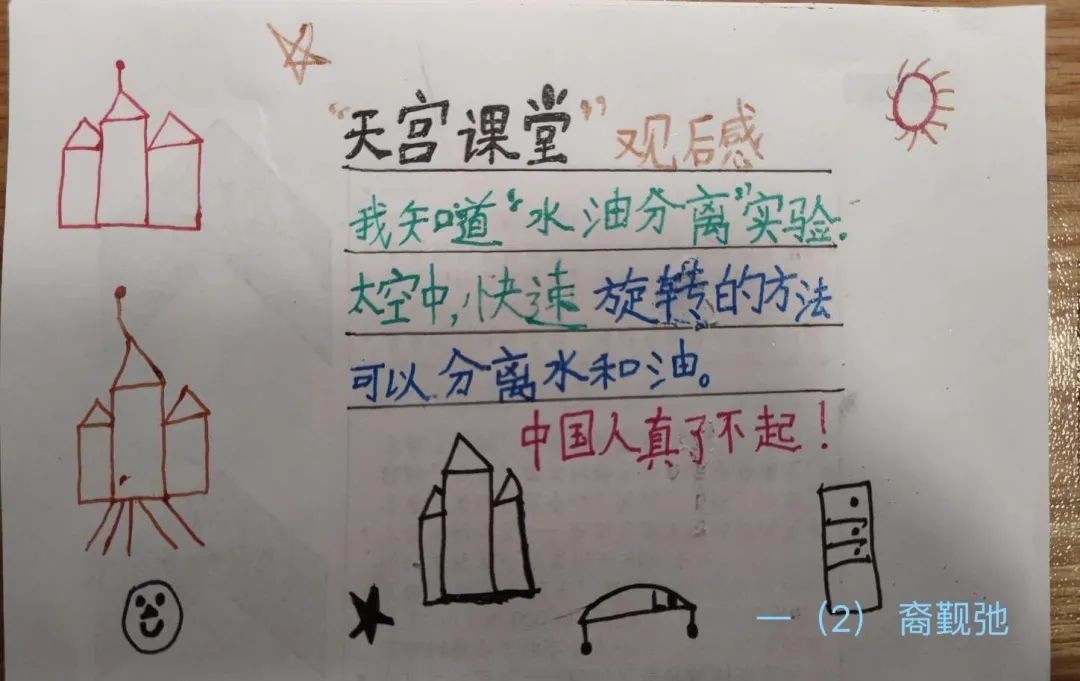 “天宫课堂”观后感
我知道“水油分离”实验.
太空中,快速旋转的方法
可以分离水和油。
中国人真了不起！
一（2） 裔觐弛